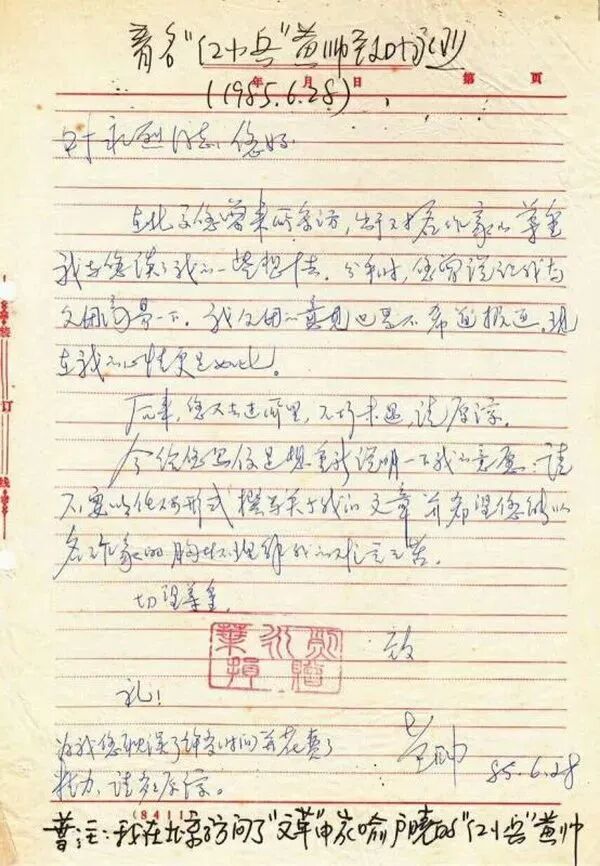 著名“红小兵”黄帅致叶永烈
年 月 日 第 页
(1985.6.28)
叶永烈同志：您好
在北京您曾来所采访，出于对名作家的尊重
我与您谈了我的一些想法。分手时，您曾说让我与
父母商量一下。我父母的意见也是不希望报道，现
在我的心情更是如此。
后来，您又去过所里，不巧未遇，请原谅。
今给您写信是想重新说明一下我的意愿：请
不要以任何形式撰写关于我的文章，并希望您能以
名作家的胸怀理解我的难言之苦。
切望尊重。
致
礼！
叶永烈捐赠
黄帅
85.6.28
为我您耽误了许多时间并花费了
精力，请多原谅。
装
订
线
(8411)
普注：我在北京访问了“文革”中家喻户晓的“红小兵”黄帅